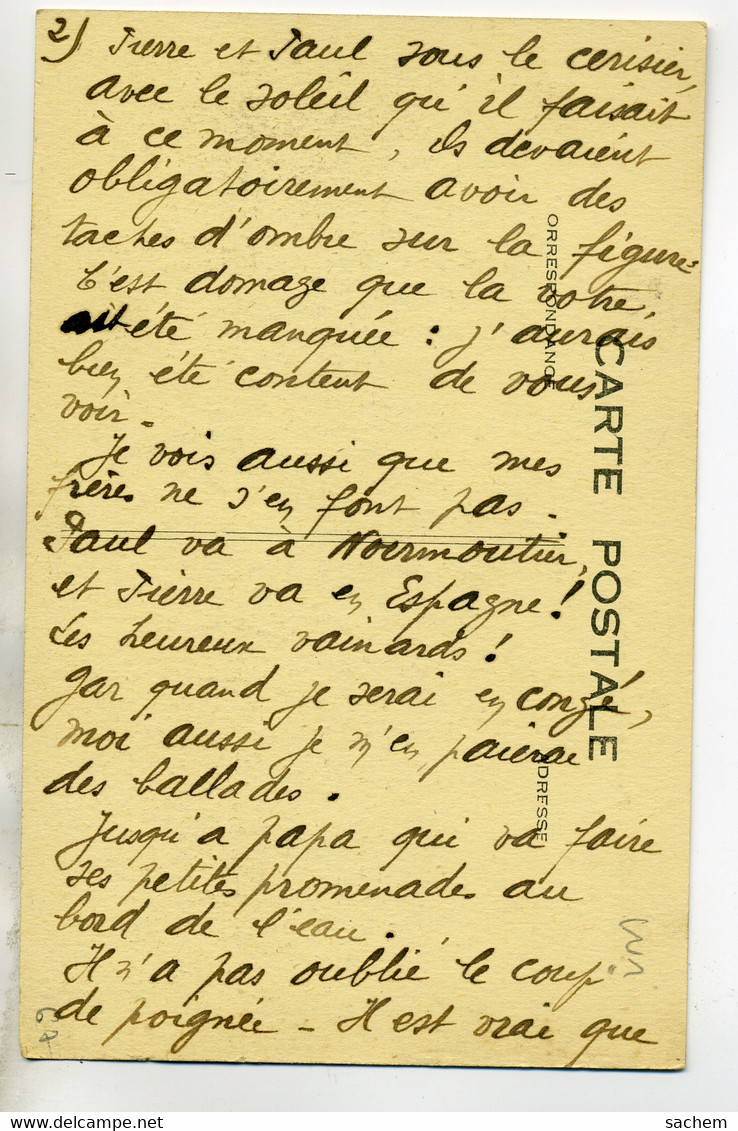 2) Pierre et Paul sous le cerisier,
avec le soleil qu'il faisait
à ce moment, ils devaient
obligatoirement avoir des
taches d'ombre sur la figure.
C'est domage que la votre,
ait été manquée : j'aurais
bien été content de vous
voir.
Je vois aussi que mes
frères ne s'en font pas.
Paul va à Noirmoutier,
et Pierre va en Espagne !
Les heureux vainards !
Gar quand je serai en congé,
moi aussi je m'en paierai
des ballades.
Jusqu'a papa qui va faire
ses petites promenades au
bord de l'eau.
Il n'a pas oublié le coup
de poignée - Il est vrai que
CARTE POSTALE
ORRESPONDANCE
DRESSE
sachem